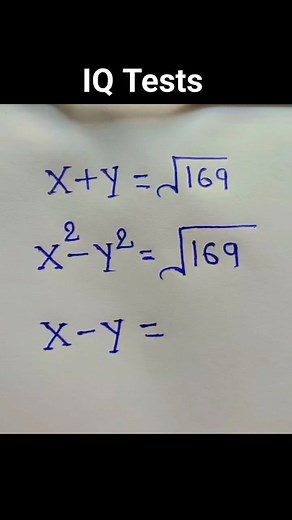 IQ Tests
X+Y=√169
X²-Y²=√169
X-Y=